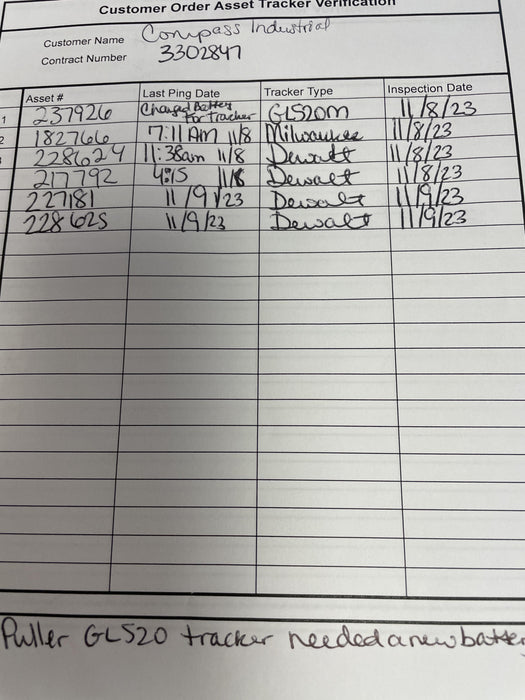 Customer Order Asset Tracker Verification
Customer Name Compass Industrial
Contract Number 3302847
Asset # Last Ping Date Tracker Type Inspection Date
1 237926 Changed Battery For Tracker GL520m 11/8/23
2 182766 7:11 AM 11/8 Milwaukee 11/8/23
3 228624 11:38am 11/8 Dewalt 11/8/23
217792 4:15 11/8 Dewalt 11/8/23
227181 11/9/23 Dewalt 11/9/23
228625 11/9/23 Dewalt 11/9/23
Puller GL520 tracker needed a new batter